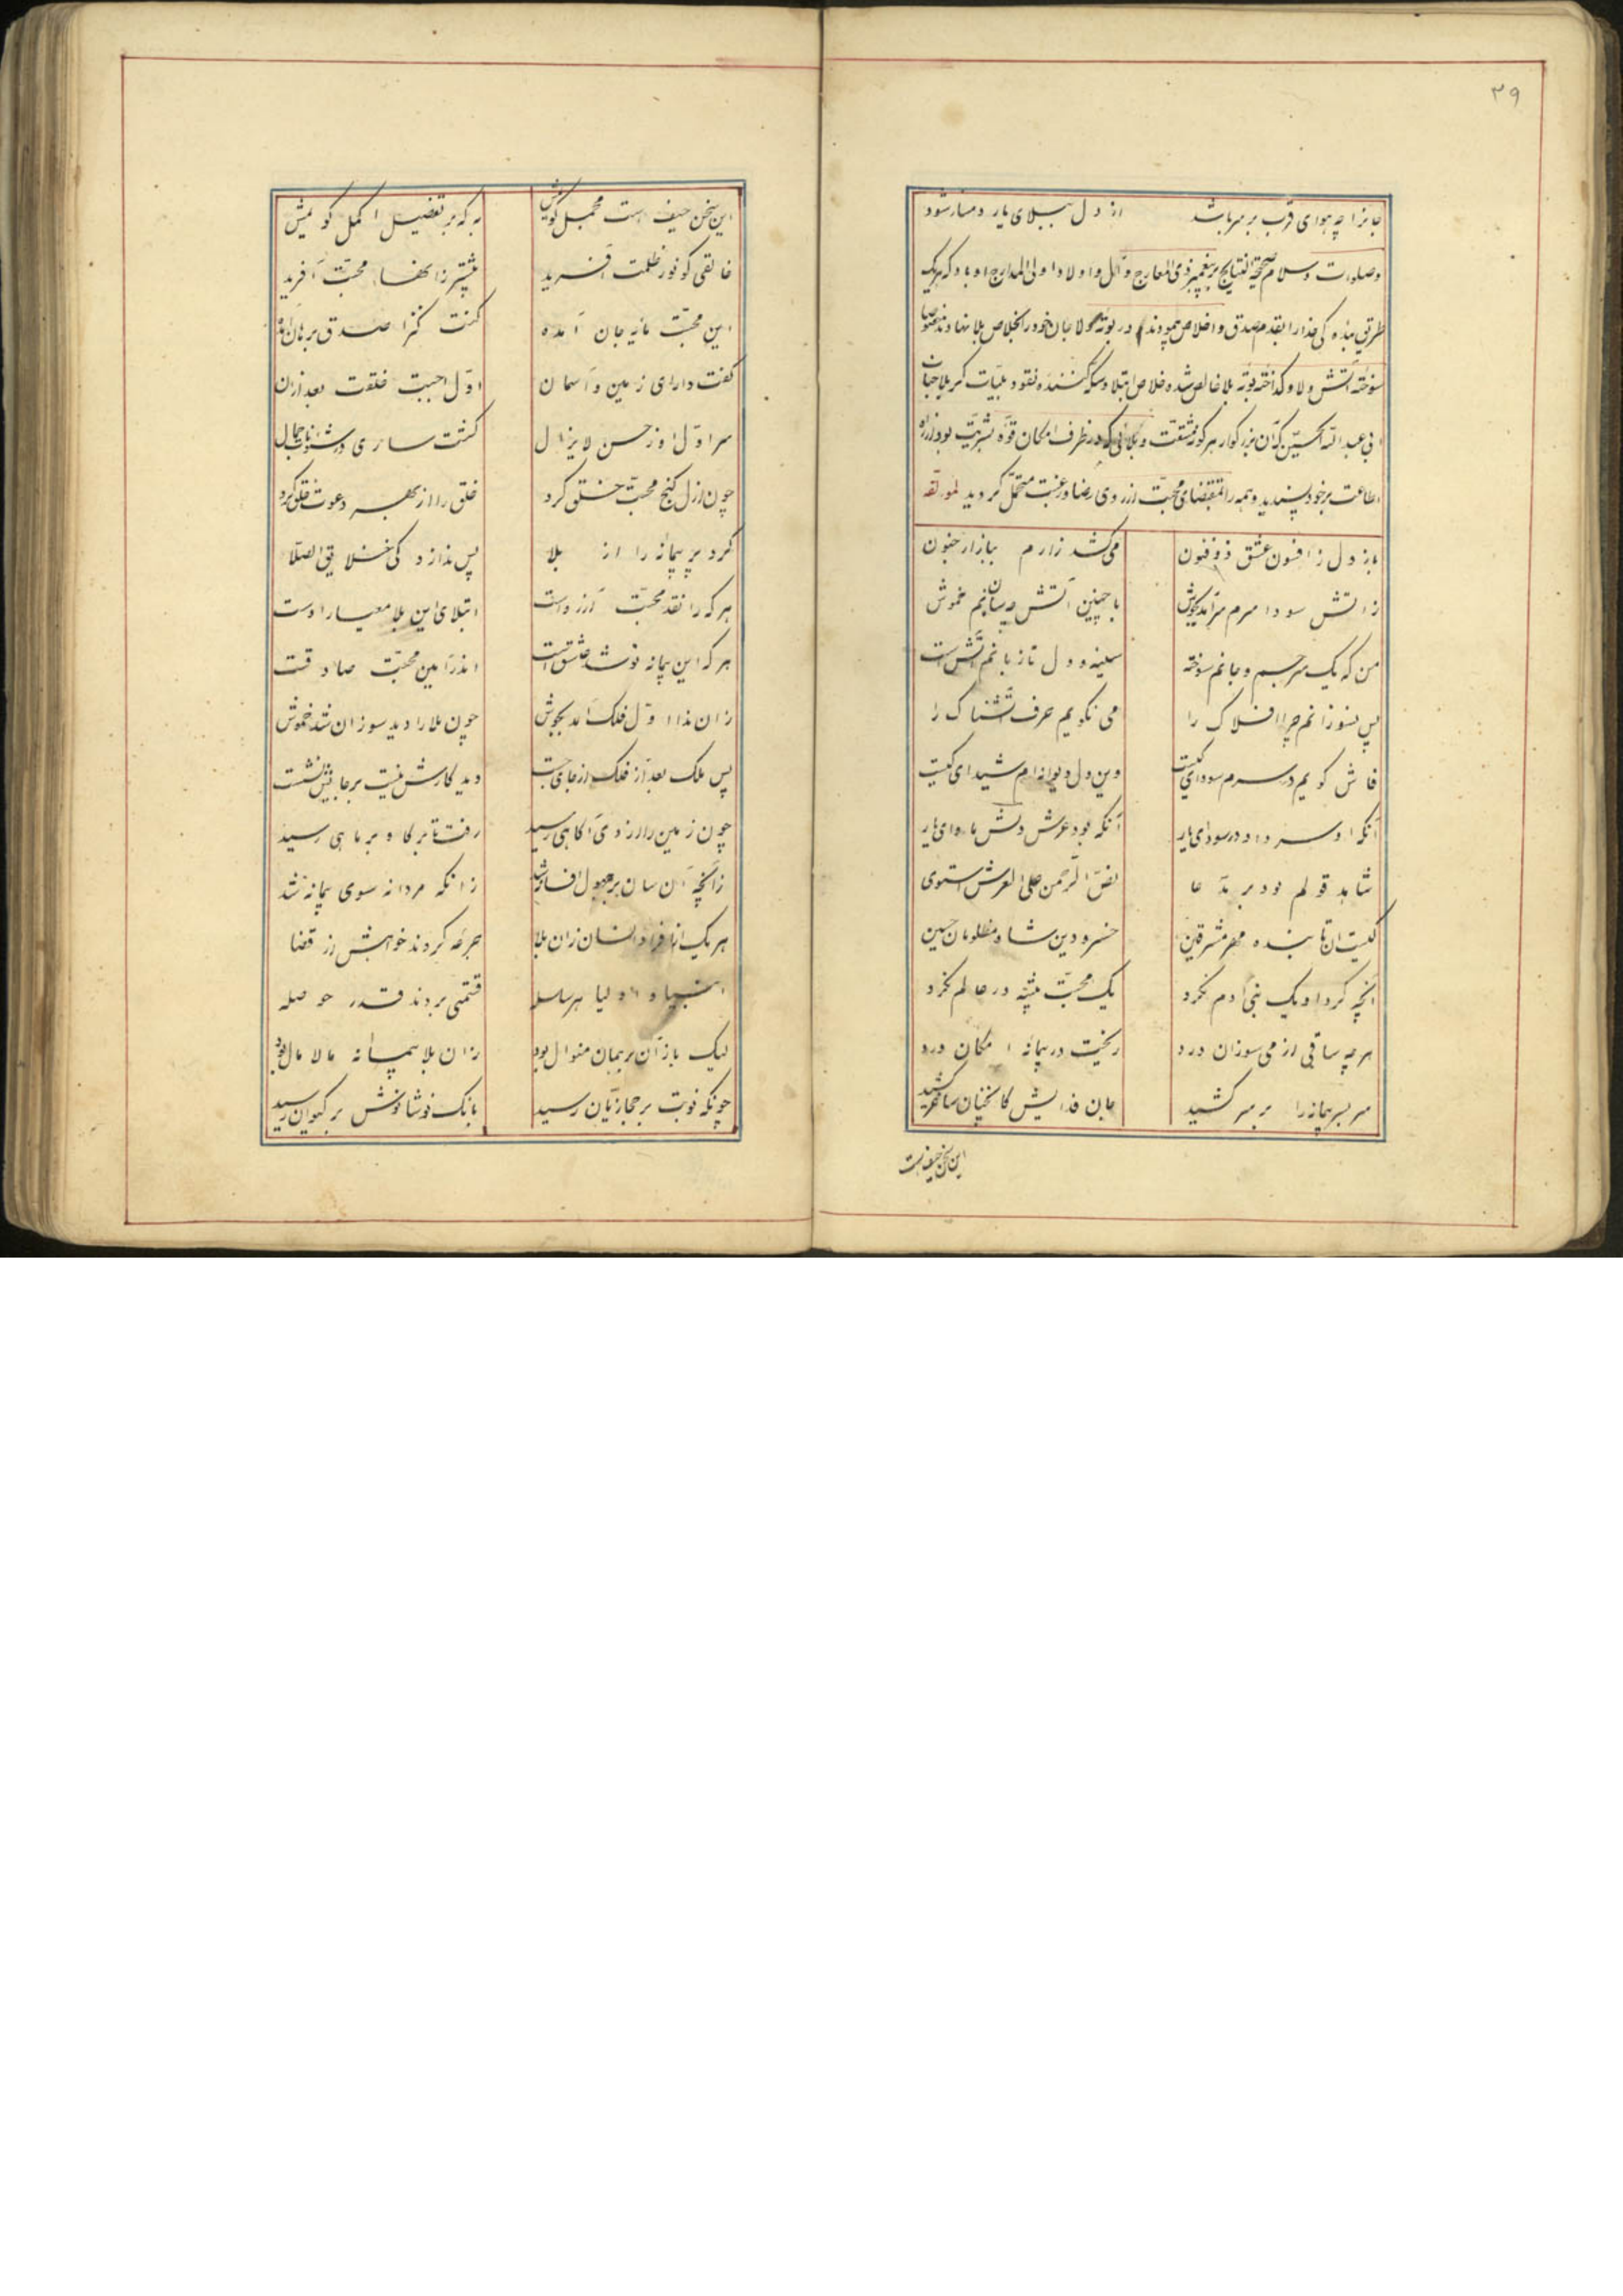 ۲۹
جانرا چه هوای قرب بر سر باشد از دل ببلای یار دمساز شود
وصلوات وسلام صحیحة النتایج بر پیغمبر ذی المعارج و آل و اولاد اولی المدارج او باد که هریک
طریق بنده کی خدا را بقدم صدق و اخلاص پیمودند در بوته ولا جان خود را بخلاص بلا نهادند خصوصا
سوخته آتش ولا و کداخته بوته بلا خالص شده خلاص ابتلا و سکه کننده نقود بلیات کربلا جناب
ابی عبد الله الحسین که آن بزرکوار هر کونه مشقت و بلائی که در ظرف امکان قوه بشریت بود از راه
اطاعت بر خود پسندید و همه را بمقتضای محبت از روی رضا و رغبت متحمل کردید لمولفه
باز دل ز افسون عشق ذوفنون می کشد زارم ببازار جنون
ز اتش سودا سرم سر آمد بجوش با چنین آتش چه سان باشم خموش
من که یک سر جسم و جانم سوخته سینه و دل تا زبانم آتش است
پس نسوزانم چرا افلاک را می نکویم حرف آتشناک را
فاش کویم در سرم سودای کیست وین دل دیوانه ام شیدای کیست
آنکه او سر داد در سودای یار آنکه بود عرش دلش ماوای یار
شاهد قولم بود بر مدعا نص الرحمن علی العرش استوی
کیست ان تابنده مهر مشرقین خسرو دین شاه مظلومان حسین
آنچه کرد او یک بنی آدم نکرد یک محبت پیشه در عالم نکرد
هر چه ساقی از می سوزان درد ریخت در پیمانه امکان درد
سر بسر پیمانه را بر سر کشید جان فدایش کانچنان ساغر کشید
این سخن حیف است
این سخن حیف است مجمل کویمش به که بر تفضیل اکمل کویمش
خالقی کو نور ظلمت آفرید پیشتر زانها محبت آفرید
این محبت مایه جان آمده کنت کنزا صدق برهان آمده
کفت دارای زمین و آسمان اول احببت خلقت بعد ازان
سر اول او ز حسن لایزال کشت ساری در شئونات جمال
چون ازل کنج محبت خلق کرد خلق را از بهر دعوت خلق کرد
کرد پر پیمانه را از بلا پس ندا زد کی خلایق الصلا
هر که را نقد محبت آرزوست ابتلای این بلا معیار اوست
هر که این پیمانه نوشد عاشق است اندر آیین محبت صادقست
زان ندا اول فلک آمد بجوش چون بلا را دید سوزان شد خموش
پس ملک بعد از فلک از جای جست دید کارش نیست بر جایش نشست
چون زمین را زان ندی آکاهی رسید رفت تا بر کاو بر ماهی رسید
زانچه آن سان بر جهول افسانه شد زانکه مردانه سوی پیمانه شد
هر یک از افراد انسان زان بلا جرعه کردند خواهش از قضا
انبیا و اولیا هر سلسله قسمتی بردند قدر حوصله
لیک باز آن بر همان منوال بود زان بلا پیمانه مالامال بود
چونکه نوبت بر حجازیان رسید بانک نوشانوش بر کیوان رسید